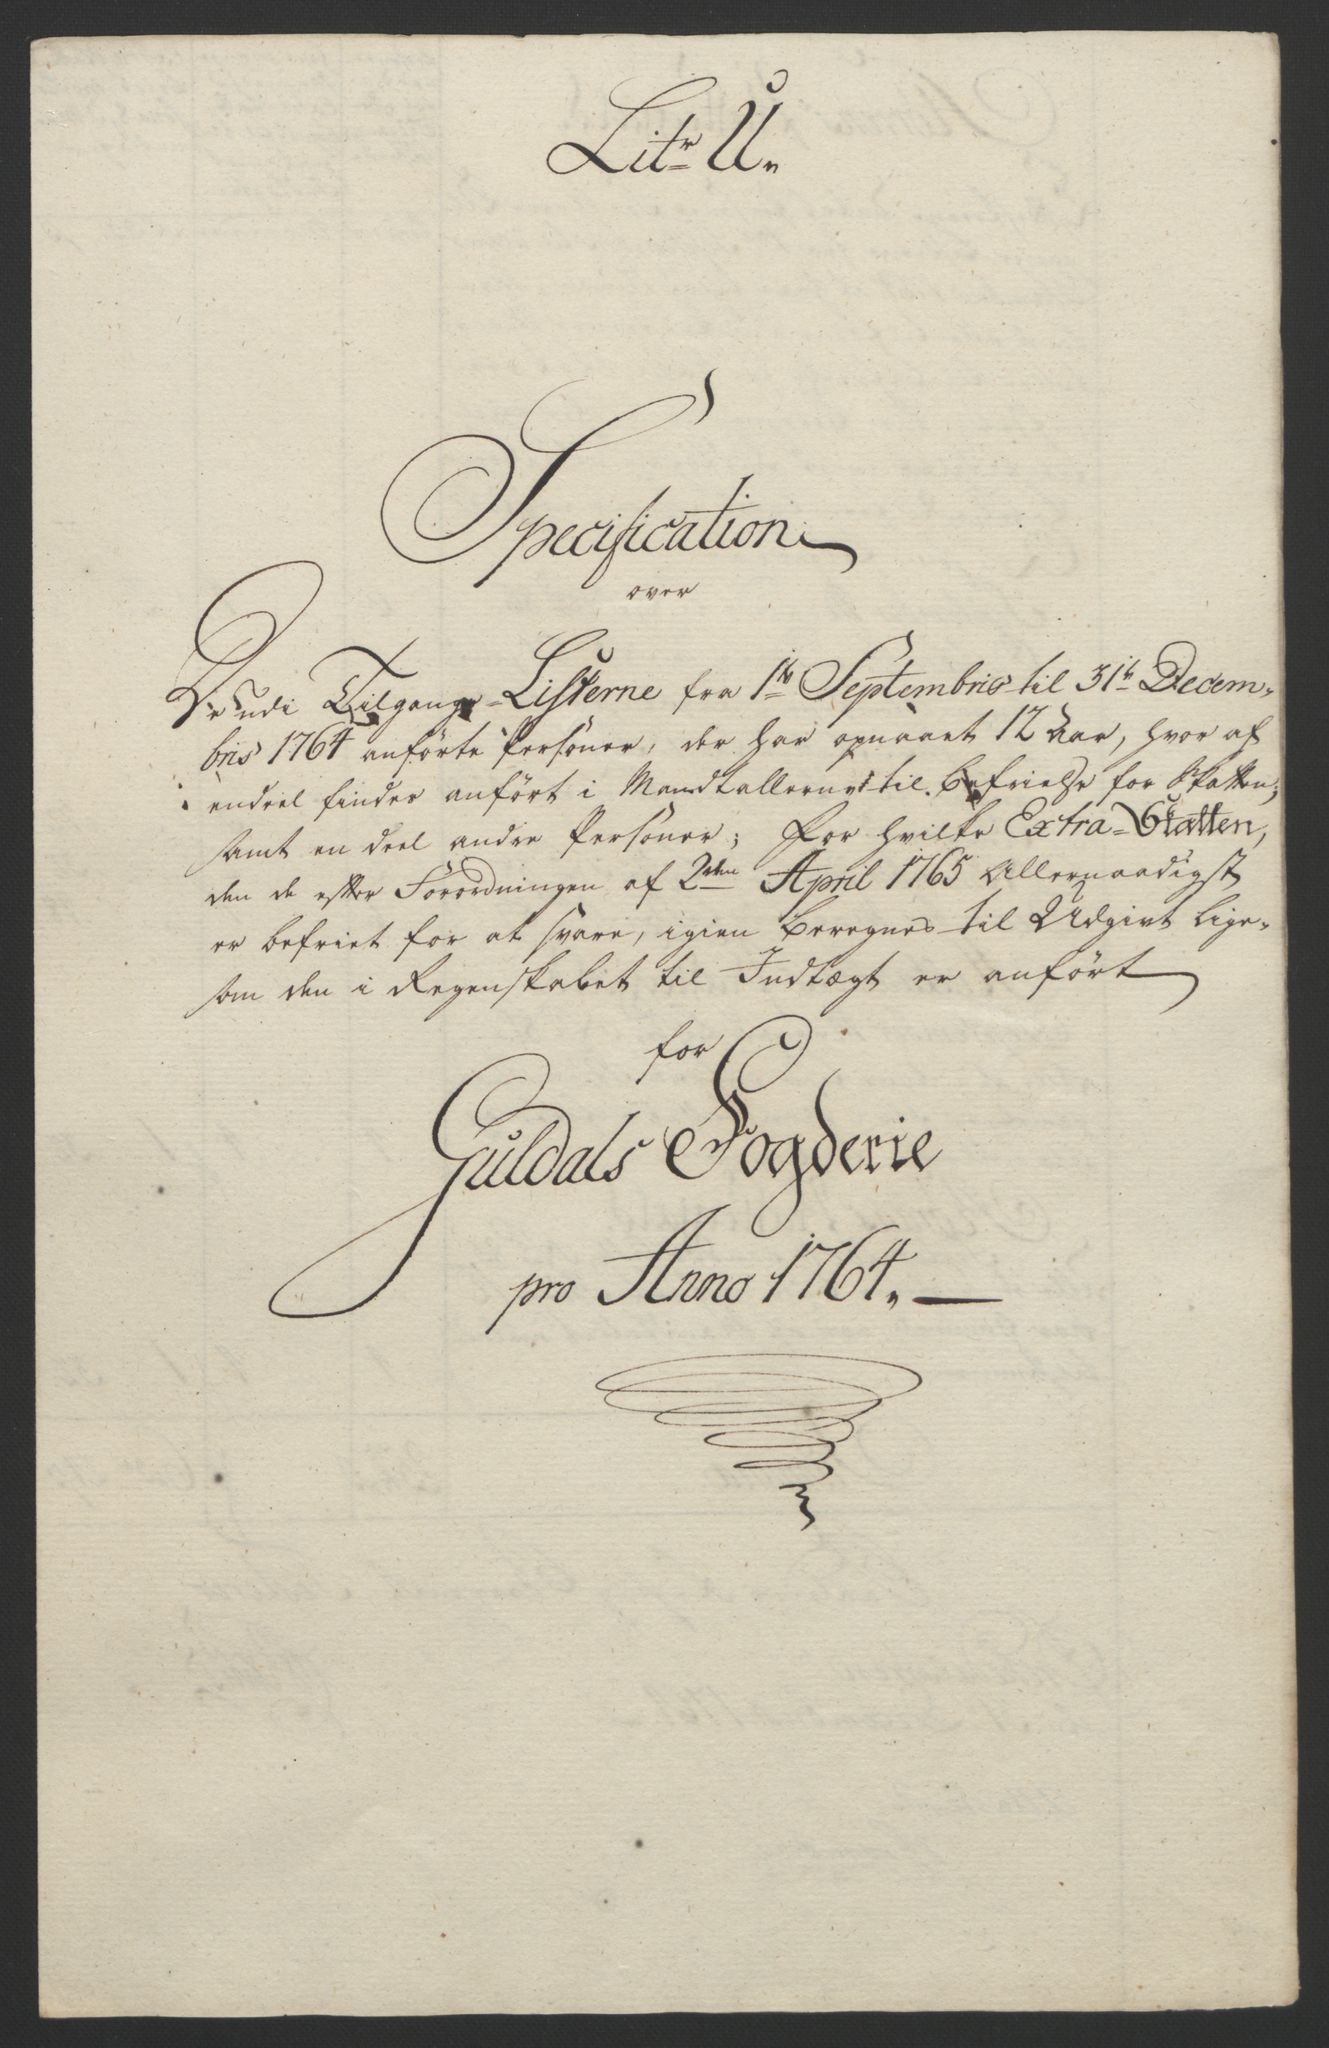 Litr U.
Specification
over
De udi Tilgangs-Listerne fra 1te Septembris til 31te Decem-
bris 1764 anførte Personer, der har opnaaet 12 Aar, hvor af
endeel findes anført i Mandtallerne til befrielse for Skatten;
samt en deel andre Personer; for hvilke Extra-Skatten,
den de efter Forordningen af 2den April 1765 Allernaadigst
er befriet for at svare, igien beregnes til Udgivt lige-
som den i Regenskabet til Indtægt er anført
for
Guldals Fogderie
pro Anno 1764.